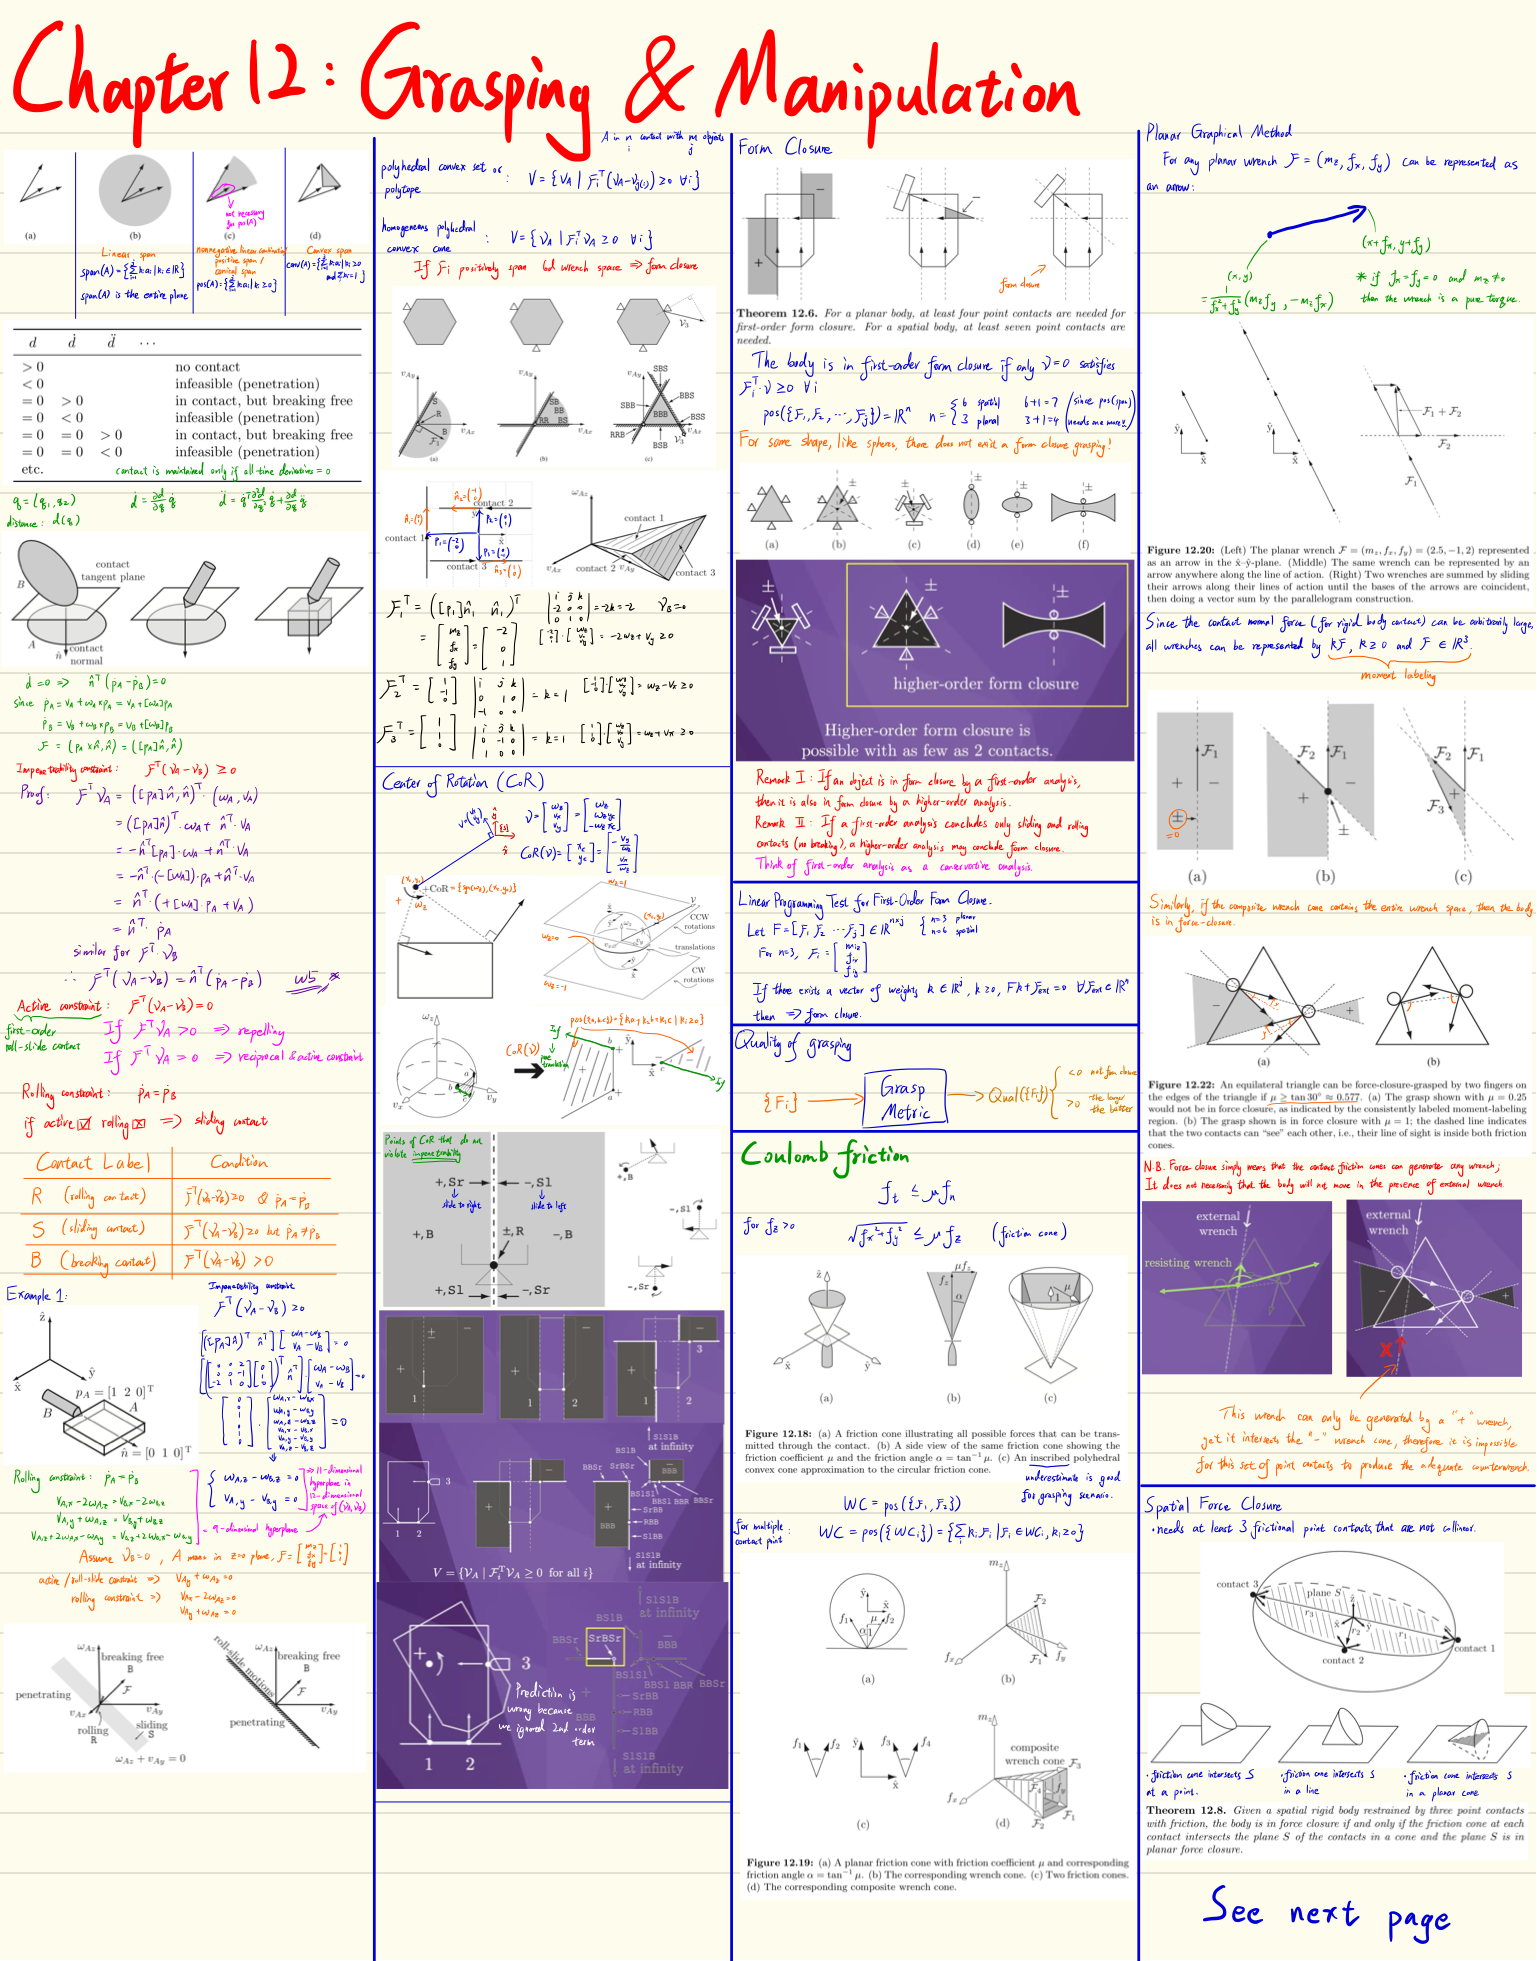 Chapter 12: Grasping & Manipulation
(a) (b) (c) (d)
not necessary
for pos(A)
Linear span
span(A) = {Σ kiai | ki ∈ ℝ}
span(A) is the entire plane
nonnegative linear combination
positive span /
conical span
pos(A) = {Σ kiai | ki ≥ 0}
Convex span
conv(A) = {Σ kiai | ki ≥ 0
and Σki = 1}
d ḋ d̈ ···
> 0 no contact
< 0 infeasible (penetration)
= 0 > 0 in contact, but breaking free
= 0 < 0 infeasible (penetration)
= 0 = 0 > 0 in contact, but breaking free
= 0 = 0 < 0 infeasible (penetration)
etc. contact is maintained only if all time derivatives = 0
q = (q1, q2)
distance: d(q)
contact
tangent plane
B
A
n̂
contact
normal
ḋ = 0 => n̂ᵀ(ṗA - ṗB) = 0
since ṗA = vA + ωA × pA = vA + [ωA]pA
ṗB = vB + ωB × pB = vB + [ωB]pB
F = (pA × n̂, n̂) = ([pA]n̂, n̂)
Impenetrability constraint: Fᵀ(VA - VB) ≥ 0
Proof: FᵀVA = ([pA]n̂, n̂)ᵀ · (ωA, vA)
= ([pA]n̂)ᵀ · ωA + n̂ᵀ · vA
= -n̂ᵀ[pA] · ωA + n̂ᵀ · vA
= -n̂ᵀ · (-[ωA]) · pA + n̂ᵀ · vA
= n̂ᵀ · (+[ωA] · pA + vA)
= n̂ᵀ · ṗA
similar for Fᵀ · VB
∴ Fᵀ(VA - VB) = n̂ᵀ(ṗA - ṗB) w5
Active constraint: Fᵀ(VA - VB) = 0
first-order
roll-slide contact
If FᵀVA > 0 => repelling
If FᵀVA = 0 => reciprocal & active constraint
Rolling constraint: ṗA = ṗB
if active ☑ rolling ☒ => sliding contact
Contact Label Condition
R (rolling contact) Fᵀ(VA-VB) ≥ 0 & ṗA = ṗB
S (sliding contact) Fᵀ(VA-VB) ≥ 0 but ṗA ≠ ṗB
B (breaking contact) Fᵀ(VA-VB) > 0
Example 1:
Impenetrability constraint
Fᵀ(VA - VB) ≥ 0
ẑ
x̂ ŷ
pA = [1 2 0]ᵀ
B A
n̂ = [0 1 0]ᵀ
Rolling constraint: ṗA = ṗB
ωA,z - ωB,z = 0
vA,y - vB,y = 0
=> 11-dimensional
hyperplane in
12-dimensional
space of (VA, VB)
= 9-dimensional hyperplane
Assume VB = 0, A moves in z=0 plane,
active/roll-slide constraint => vAy + ωAz = 0
rolling constraint => vAx - 2ωAz = 0
vAy + ωAz = 0
ωAz breaking free
B
F
penetrating
vAx vAy
rolling
R
sliding
S
ωAz + vAy = 0
roll-slide motions
ωAz breaking free
B
F
vAy
penetrating
A in n contact with m objects
i j
polyhedral convex set or
polytope : V = {VA | Fiᵀ(VA - Vj(i)) ≥ 0 ∀i}
homogeneous polyhedral
convex cone : V = {VA | FiᵀVA ≥ 0 ∀i}
If Fi positively span 6d wrench space => form closure
V3
vAy S R B F1 vAx
(a)
vAy SB BB RR BS vAx
(b)
SBS
vAy
SBB BBS
BBB BSS
RRB vAx
BSB V3
(c)
contact 2
contact 1
contact 3
ωAz
contact 1
vAx contact 2 vAy
contact 3
Center of Rotation (CoR)
+CoR = {sgn(ωz), (xc, yc)}
ωz=1
V
CCW
rotations
translations
CW
rotations
ωz=0
ωz=-1
ωz
vx vy
CoR(V)
pos({a,b,c}) = {k1a + k2b + k3c | ki ≥ 0}
Points of CoR that do not
violate impenetrability
+,Sr -,Sl
slide to right slide to left
±,R
+,B -,B
+,Sl -,Sr
+,B
-,Sl
-,Sr
± -
+
1
1 2
3
1 2
3
1 2
S1S1B
at infinity
BS1B
BBSr SrBSr
BBB
BS1S1
BBS1 BBR BBSr
SrBB
RBB
S1BB
S1S1B
at infinity
V = {VA | FiᵀVA ≥ 0 for all i}
S1S1B
at infinity
BS1B
BBSr SrBSr
BBB
BS1S1
BBS1 BBR BBSr
SrBB
RBB
S1BB
S1S1B
at infinity
3
1 2
Prediction is
wrong because
we ignored 2nd order
term
Form Closure
form closure
Theorem 12.6. For a planar body, at least four point contacts are needed for
first-order form closure. For a spatial body, at least seven point contacts are
needed.
The body is in first-order form closure if only V=0 satisfies
Fiᵀ · V ≥ 0 ∀i
pos({F1, F2, ···, Fj}) = ℝⁿ n = { 6 spatial 6+1=7
3 planar 3+1=4
For some shape, like spheres, there does not exist a form closure grasping!
(a) (b) (c) (d) (e) (f)
higher-order form closure
Higher-order form closure is
possible with as few as 2 contacts.
Remark I: If an object is in form closure by a first-order analysis,
then it is also in form closure by a higher-order analysis.
Remark II: If a first-order analysis concludes only sliding and rolling
contacts (no breaking), a higher-order analysis may conclude form closure.
Think of first-order analysis as a conservative analysis.
Linear Programming Test for First-Order Form Closure.
Let F = [F1 F2 ··· Fj] ∈ ℝⁿˣʲ { n=3 planar
n=6 spatial
For n=3, Fi = [miz fix fiy]
If there exists a vector of weights k ∈ ℝʲ, k ≥ 0, Fk + Fext = 0 ∀Fext ∈ ℝⁿ
then => form closure.
Quality of grasping
{Fi} → Grasp
Metric → Qual({Fi})
<0 not form closure
>0 the larger
the better
Coulomb friction
ft ≤ μfn
for fz > 0 √(fx²+fy²) ≤ μfz (friction cone)
ẑ μfz fz α μ
x̂ ŷ
(a) (b) (c)
Figure 12.18: (a) A friction cone illustrating all possible forces that can be trans-
mitted through the contact. (b) A side view of the same friction cone showing the
friction coefficient μ and the friction angle α = tan⁻¹ μ. (c) An inscribed polyhedral
convex cone approximation to the circular friction cone.
underestimate is good
for grasping scenario.
WC = pos({F1, F2})
for multiple
contact point : WC = pos({WCi}) = {Σ kiFi | Fi ∈ WCi, ki ≥ 0}
(a) (b)
composite
wrench cone
(c) (d)
Figure 12.19: (a) A planar friction cone with friction coefficient μ and corresponding
friction angle α = tan⁻¹ μ. (b) The corresponding wrench cone. (c) Two friction cones.
(d) The corresponding composite wrench cone.
Planar Graphical Method
For any planar wrench F = (mz, fx, fy) can be represented as
an arrow:
(x+fx, y+fy)
(x, y)
= 1/(fx²+fy²) (mzfy, -mzfx)
* if fx = fy = 0 and mz ≠ 0
then the wrench is a pure torque.
F1 + F2
F2
F1
Figure 12.20: (Left) The planar wrench F = (mz, fx, fy) = (2.5, −1, 2) represented
as an arrow in the x̂–ŷ-plane. (Middle) The same wrench can be represented by an
arrow anywhere along the line of action. (Right) Two wrenches are summed by sliding
their arrows along their lines of action until the bases of the arrows are coincident,
then doing a vector sum by the parallelogram construction.
Since the contact normal force (for rigid body contact) can be arbitrarily large,
all wrenches can be represented by kF, k ≥ 0 and F ∈ ℝ³.
moment labeling
F1
+ -
±
=0
F2 F1
+ -
±
F2 F1
F3
(a) (b) (c)
Similarly, if the composite wrench cone contains the entire wrench space, then the body
is in force-closure.
(a) (b)
Figure 12.22: An equilateral triangle can be force-closure-grasped by two fingers on
the edges of the triangle if μ ≥ tan 30° ≈ 0.577. (a) The grasp shown with μ = 0.25
would not be in force closure, as indicated by the consistently labeled moment-labeling
region. (b) The grasp shown is in force closure with μ = 1; the dashed line indicates
that the two contacts can “see” each other, i.e., their line of sight is inside both friction
cones.
N.B. Force closure simply means that the contact friction cones can generate any wrench;
It does not necessarily that the body will not move in the presence of external wrench.
external
wrench
resisting wrench
external
wrench
This wrench can only be generated by a "+" wrench,
yet it intersects the "-" wrench cone, therefore it is impossible
for this set of point contacts to produce the adequate counterwrench.
Spatial Force Closure
• needs at least 3 frictional point contacts that are not collinear.
contact 3
plane S
r3
r1
r2
contact 1
contact 2
• friction cone intersects S
at a point.
• friction cone intersects S
in a line
• friction cone intersects S
in a planar cone
Theorem 12.8. Given a spatial rigid body restrained by three point contacts
with friction, the body is in force closure if and only if the friction cone at each
contact intersects the plane S of the contacts in a cone and the plane S is in
planar force closure.
See next page